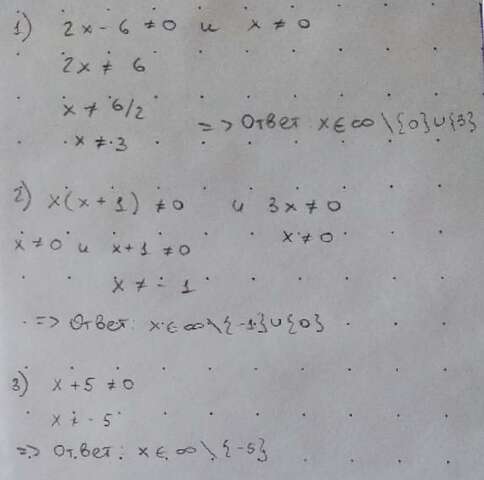 1) 2x-6 ≠0 и x ≠0
2x ≠ 6
x ≠ 6/2
x ≠ 3
=> Ответ: x ∈ ∞ \ {0}∪{3}
2) x(x+1) ≠0 и 3x ≠0
x ≠0 и x+1 ≠0
x ≠0
x ≠ -1
=> Ответ: x ∈ ∞ \ {-1}∪{0}
3) x+5 ≠0
x ≠ -5
=> Ответ: x ∈ ∞ \ {-5}